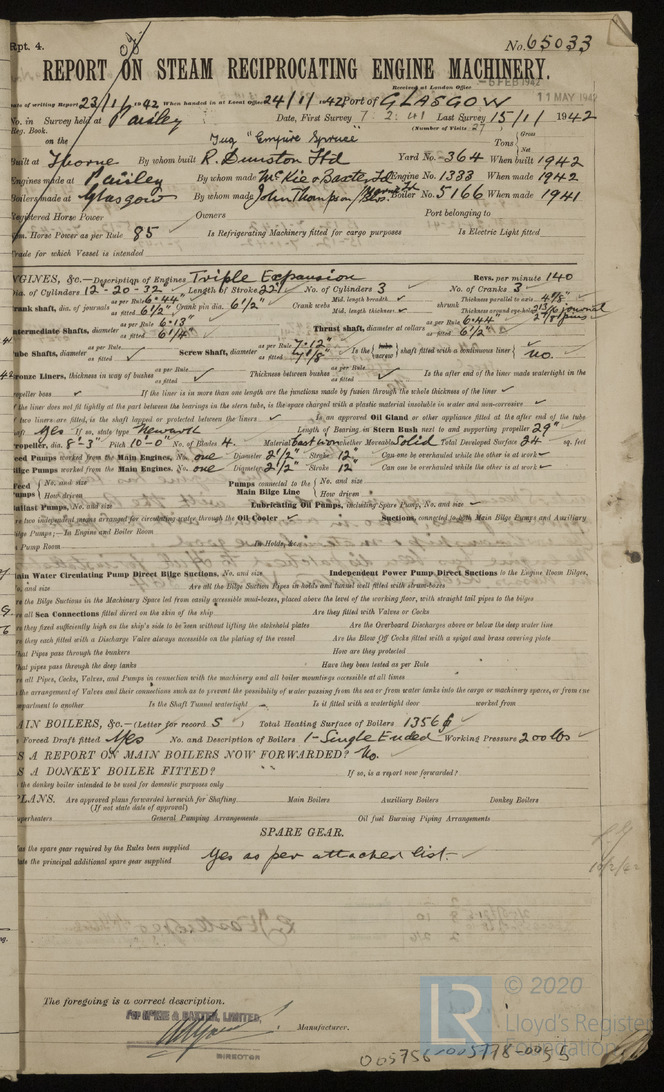 Rpt. 4.
No. 65033
REPORT ON STEAM RECIPROCATING ENGINE MACHINERY.
Received at London Office
-6 FEB 1942
11 MAY 1942
Date of writing Report 23/1/1942 When handed in at Local Office 24/1/1942 Port of GLASGOW
No. in Survey held at Paisley Date, First Survey 7.2.41 Last Survey 15/1/1942
Reg. Book. (Number of Visits 27)
on the Tug "Empire Spruce" Tons { Gross Net
Built at Thorne By whom built R. Dunston Ltd Yard No. 364 When built 1942
Engines made at Paisley By whom made McKie & Baxter Ltd Engine No. 1388 When made 1942
Boilers made at Glasgow By whom made John Thompson Boiler No. 5166 When made 1941
Registered Horse Power Owners Port belonging to
Nom. Horse Power as per Rule 85 Is Refrigerating Machinery fitted for cargo purposes Is Electric Light fitted
Trade for which Vessel is intended
ENGINES, &c.—Description of Engines Triple Expansion Revs. per minute 140
Dia. of Cylinders 12 - 20 - 32 Length of Stroke 22 No. of Cylinders 3 No. of Cranks 3
Crank shaft, dia. of journals as per Rule 6.44" as fitted 6½" Crank pin dia. 6½" Crank webs Mid. length breadth Mid. length thickness shrunk Thickness parallel to axis 4⅛" Thickness around eye-hole
Intermediate Shafts, diameter as per Rule 6.13" as fitted 6¼" Thrust shaft, diameter at collars as per Rule 6.44" as fitted 6½"
Tube Shafts, diameter as per Rule as fitted Screw Shaft, diameter as per Rule 7.12" as fitted 7⅛" Is the { tube screw } shaft fitted with a continuous liner { no.
Bronze Liners, thickness in way of bushes as per Rule as fitted Thickness between bushes as per Rule as fitted Is the after end of the liner made watertight in the
propeller boss If the liner is in more than one length are the junctions made by fusion through the whole thickness of the liner
If the liner does not fit tightly at the part between the bearings in the stern tube, is the space charged with a plastic material insoluble in water and non-corrosive
If two liners are fitted, is the shaft lapped or protected between the liners Is an approved Oil Gland or other appliance fitted at the after end of the tube
shaft Yes If so, state type Newark Length of Bearing in Stern Bush next to and supporting propeller 29"
Propeller, dia. 8'-3" Pitch 10'-0" No. of Blades 4. Material Cast iron whether Moveable Solid Total Developed Surface 24 sq. feet
Feed Pumps worked from the Main Engines, No. one Diameter 2½" Stroke 12" Can one be overhauled while the other is at work
Bilge Pumps worked from the Main Engines, No. one Diameter 2½" Stroke 12" Can one be overhauled while the other is at work
Feed Pumps { No. and size How driven Pumps connected to the Main Bilge Line { No. and size How driven
Ballast Pumps, No. and size Lubricating Oil Pumps, including Spare Pump, No. and size
Are two independent means arranged for circulating water through the Oil Cooler Suctions, connected to both Main Bilge Pumps and Auxiliary
Bilge Pumps;—In Engine and Boiler Room
In Pump Room In Holds, &c.
Main Water Circulating Pump Direct Bilge Suctions, No. and size Independent Power Pump Direct Suctions to the Engine Room Bilges,
No. and size Are all the Bilge Suction Pipes in holds and tunnel well fitted with strum-boxes
Are the Bilge Suctions in the Machinery Space led from easily accessible mud-boxes, placed above the level of the working floor, with straight tail pipes to the bilges
Are all Sea Connections fitted direct on the skin of the ship Are they fitted with Valves or Cocks
Are they fixed sufficiently high on the ship's side to be seen without lifting the stokehold plates Are the Overboard Discharges above or below the deep water line
Are they each fitted with a Discharge Valve always accessible on the plating of the vessel Are the Blow Off Cocks fitted with a spigot and brass covering plate
What Pipes pass through the bunkers How are they protected
What pipes pass through the deep tanks Have they been tested as per Rule
Are all Pipes, Cocks, Valves, and Pumps in connection with the machinery and all boiler mountings accessible at all times
Is the arrangement of Valves and their connections such as to prevent the possibility of water passing from the sea or from water tanks into the cargo or machinery spaces, or from one
compartment to another Is the Shaft Tunnel watertight Is it fitted with a watertight door worked from
MAIN BOILERS, &c.—(Letter for record S) Total Heating Surface of Boilers 1356
Is Forced Draft fitted Yes No. and Description of Boilers 1-Single Ended Working Pressure 200 lbs
IS A REPORT ON MAIN BOILERS NOW FORWARDED? No.
IS A DONKEY BOILER FITTED? " If so, is a report now forwarded?
Is the donkey boiler intended to be used for domestic purposes only
PLANS. Are approved plans forwarded herewith for Shafting Main Boilers Auxiliary Boilers Donkey Boilers
(If not state date of approval)
Superheaters General Pumping Arrangements Oil fuel Burning Piping Arrangements
SPARE GEAR.
Has the spare gear required by the Rules been supplied Yes as per attached list.
State the principal additional spare gear supplied
10/2/42
The foregoing is a correct description.
FOR McKIE & BAXTER, LIMITED,
Manufacturer.
DIRECTOR
© 2020
LR
Lloyd's Register
Foundation
005756-005778-0035